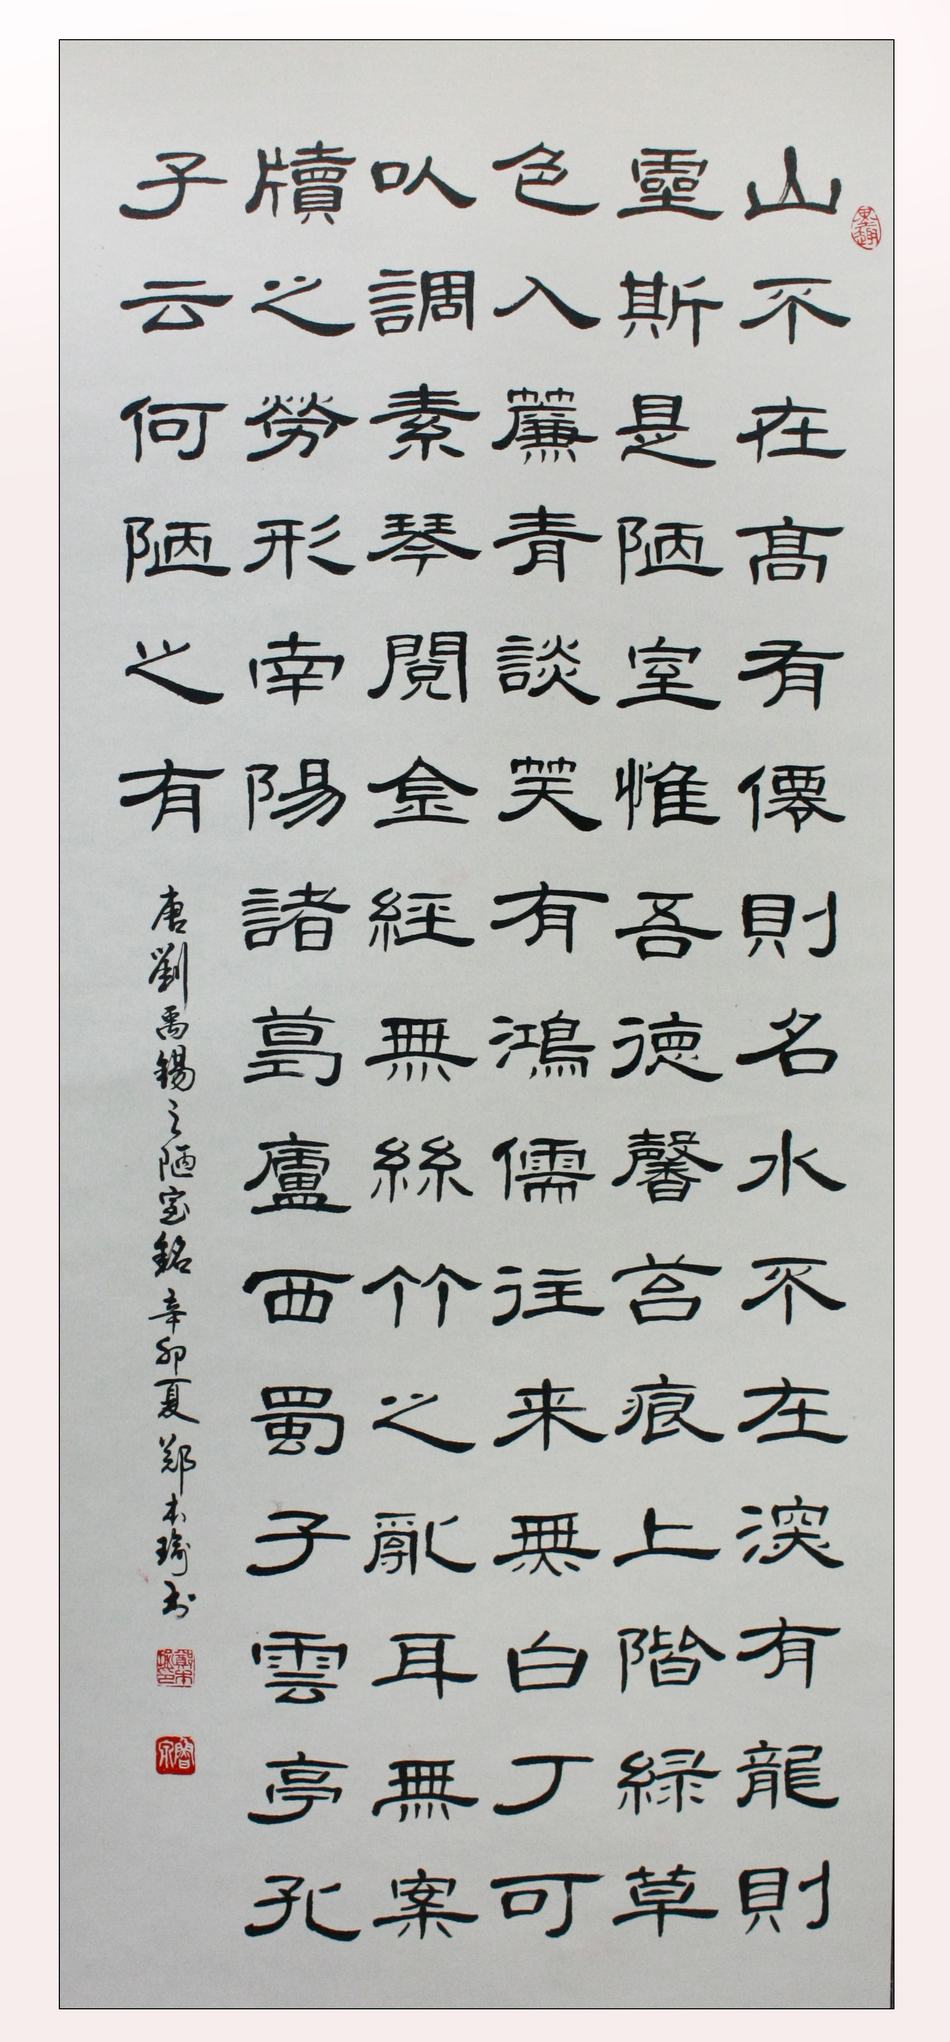 山不在高有僊則名水不在深有龍則
靈斯是陋室惟吾德馨苔痕上階綠草
色入簾青談笑有鴻儒往来無白丁可
以調素琴閱金經無絲竹之亂耳無案
牘之勞形南陽諸葛廬西蜀子雲亭孔
子云何陋之有
唐劉禹錫之陋室銘辛卯夏鄭本瑜书